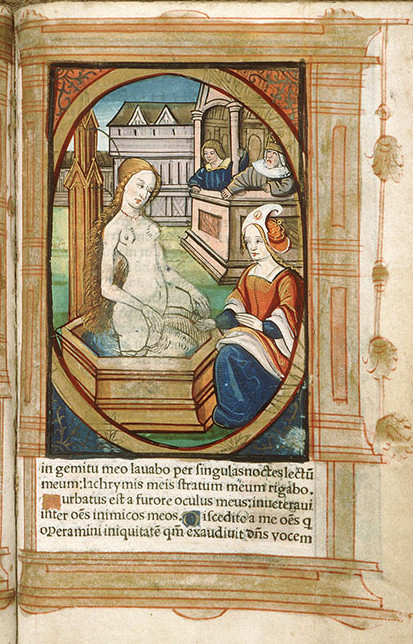 in gemitu meo lavabo per singulas noctes lectū
meum: lachrymis meis stratum meum rigabo.
Turbatus est a furore oculus meus: inveteravi
inter oēs inimicos meos. Discedite a me oēs q
operamini iniquitatē qm̄ exaudivit dn̄s vocem